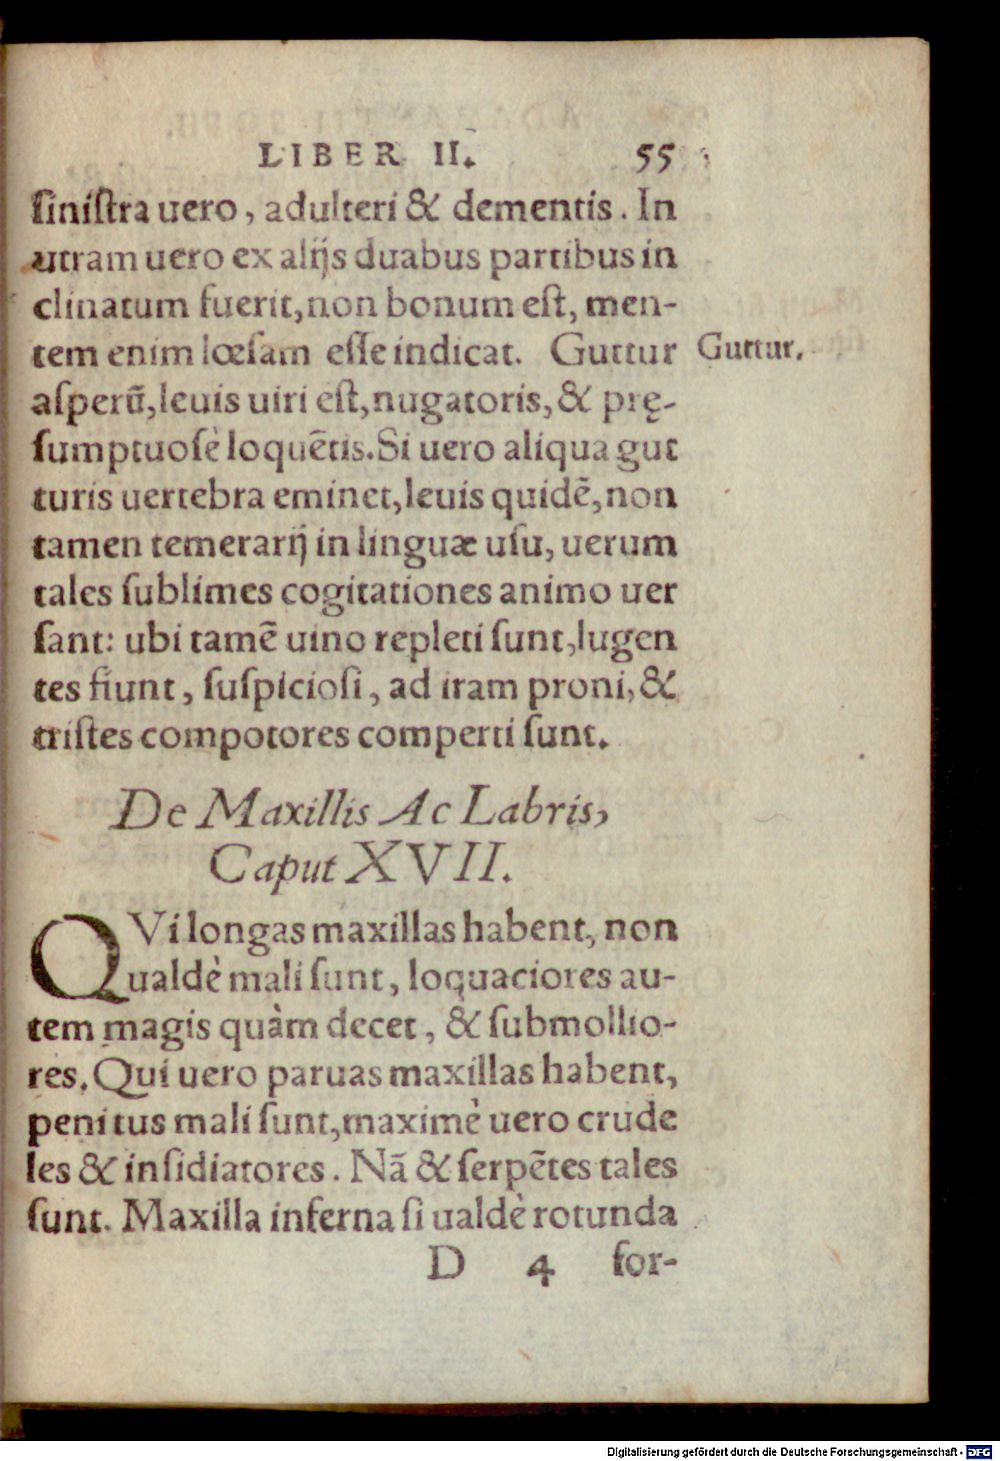 LIBER II. 55
siniſtra uero, adulteri & dementis. In
utram uero ex alijs duabus partibus in
clinatum fuerit, non bonum eſt, men-
tem enim lœſam eſſe indicat. Guttur
Guttur.
aſperũ, leuis uiri eſt, nugatoris, & prę-
ſumptuoſè loquẽtis. Si uero aliqua gut
turis uertebra eminet, leuis quidẽ, non
tamen temerarij in linguæ uſu, uerum
tales ſublimes cogitationes animo uer
ſant: ubi tamẽ uino repleti ſunt, lugen
tes fiunt, ſuſpicioſi, ad iram proni, &
triſtes compotores comperti ſunt.
De Maxillis Ac Labris,
Caput XVII.
QVi longas maxillas habent, non
ualdè mali ſunt, loquaciores au-
tem magis quàm decet, & ſubmollio-
res. Qui uero paruas maxillas habent,
penitus mali ſunt, maximè uero crude
les & inſidiatores. Nã & ſerpẽtes tales
ſunt. Maxilla inferna ſi ualdè rotunda
D 4 for-
Digitalisierung gefördert durch die Deutsche Forschungsgemeinschaft - DFG